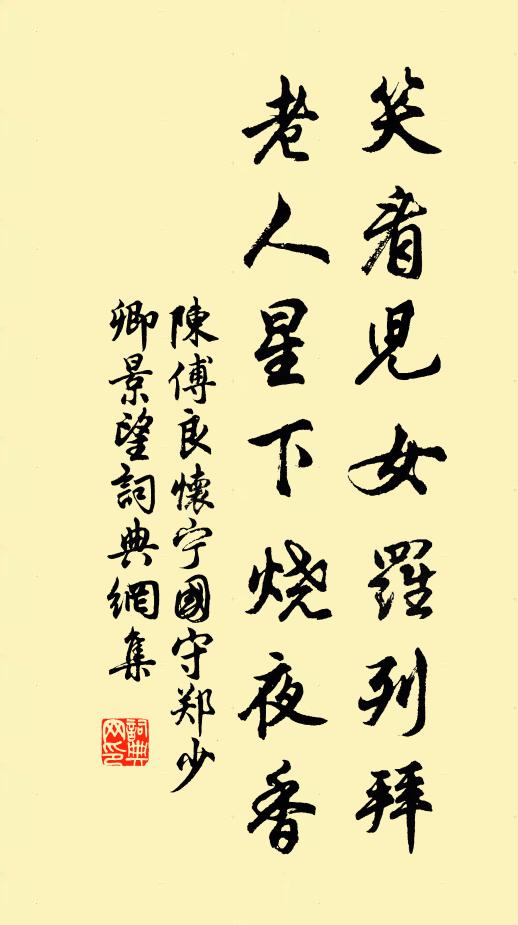 笑看児女羅列拜
老人星下烧夜香
陳傅良懷宁國守郑少
卿景望詞典網集
詞典网印